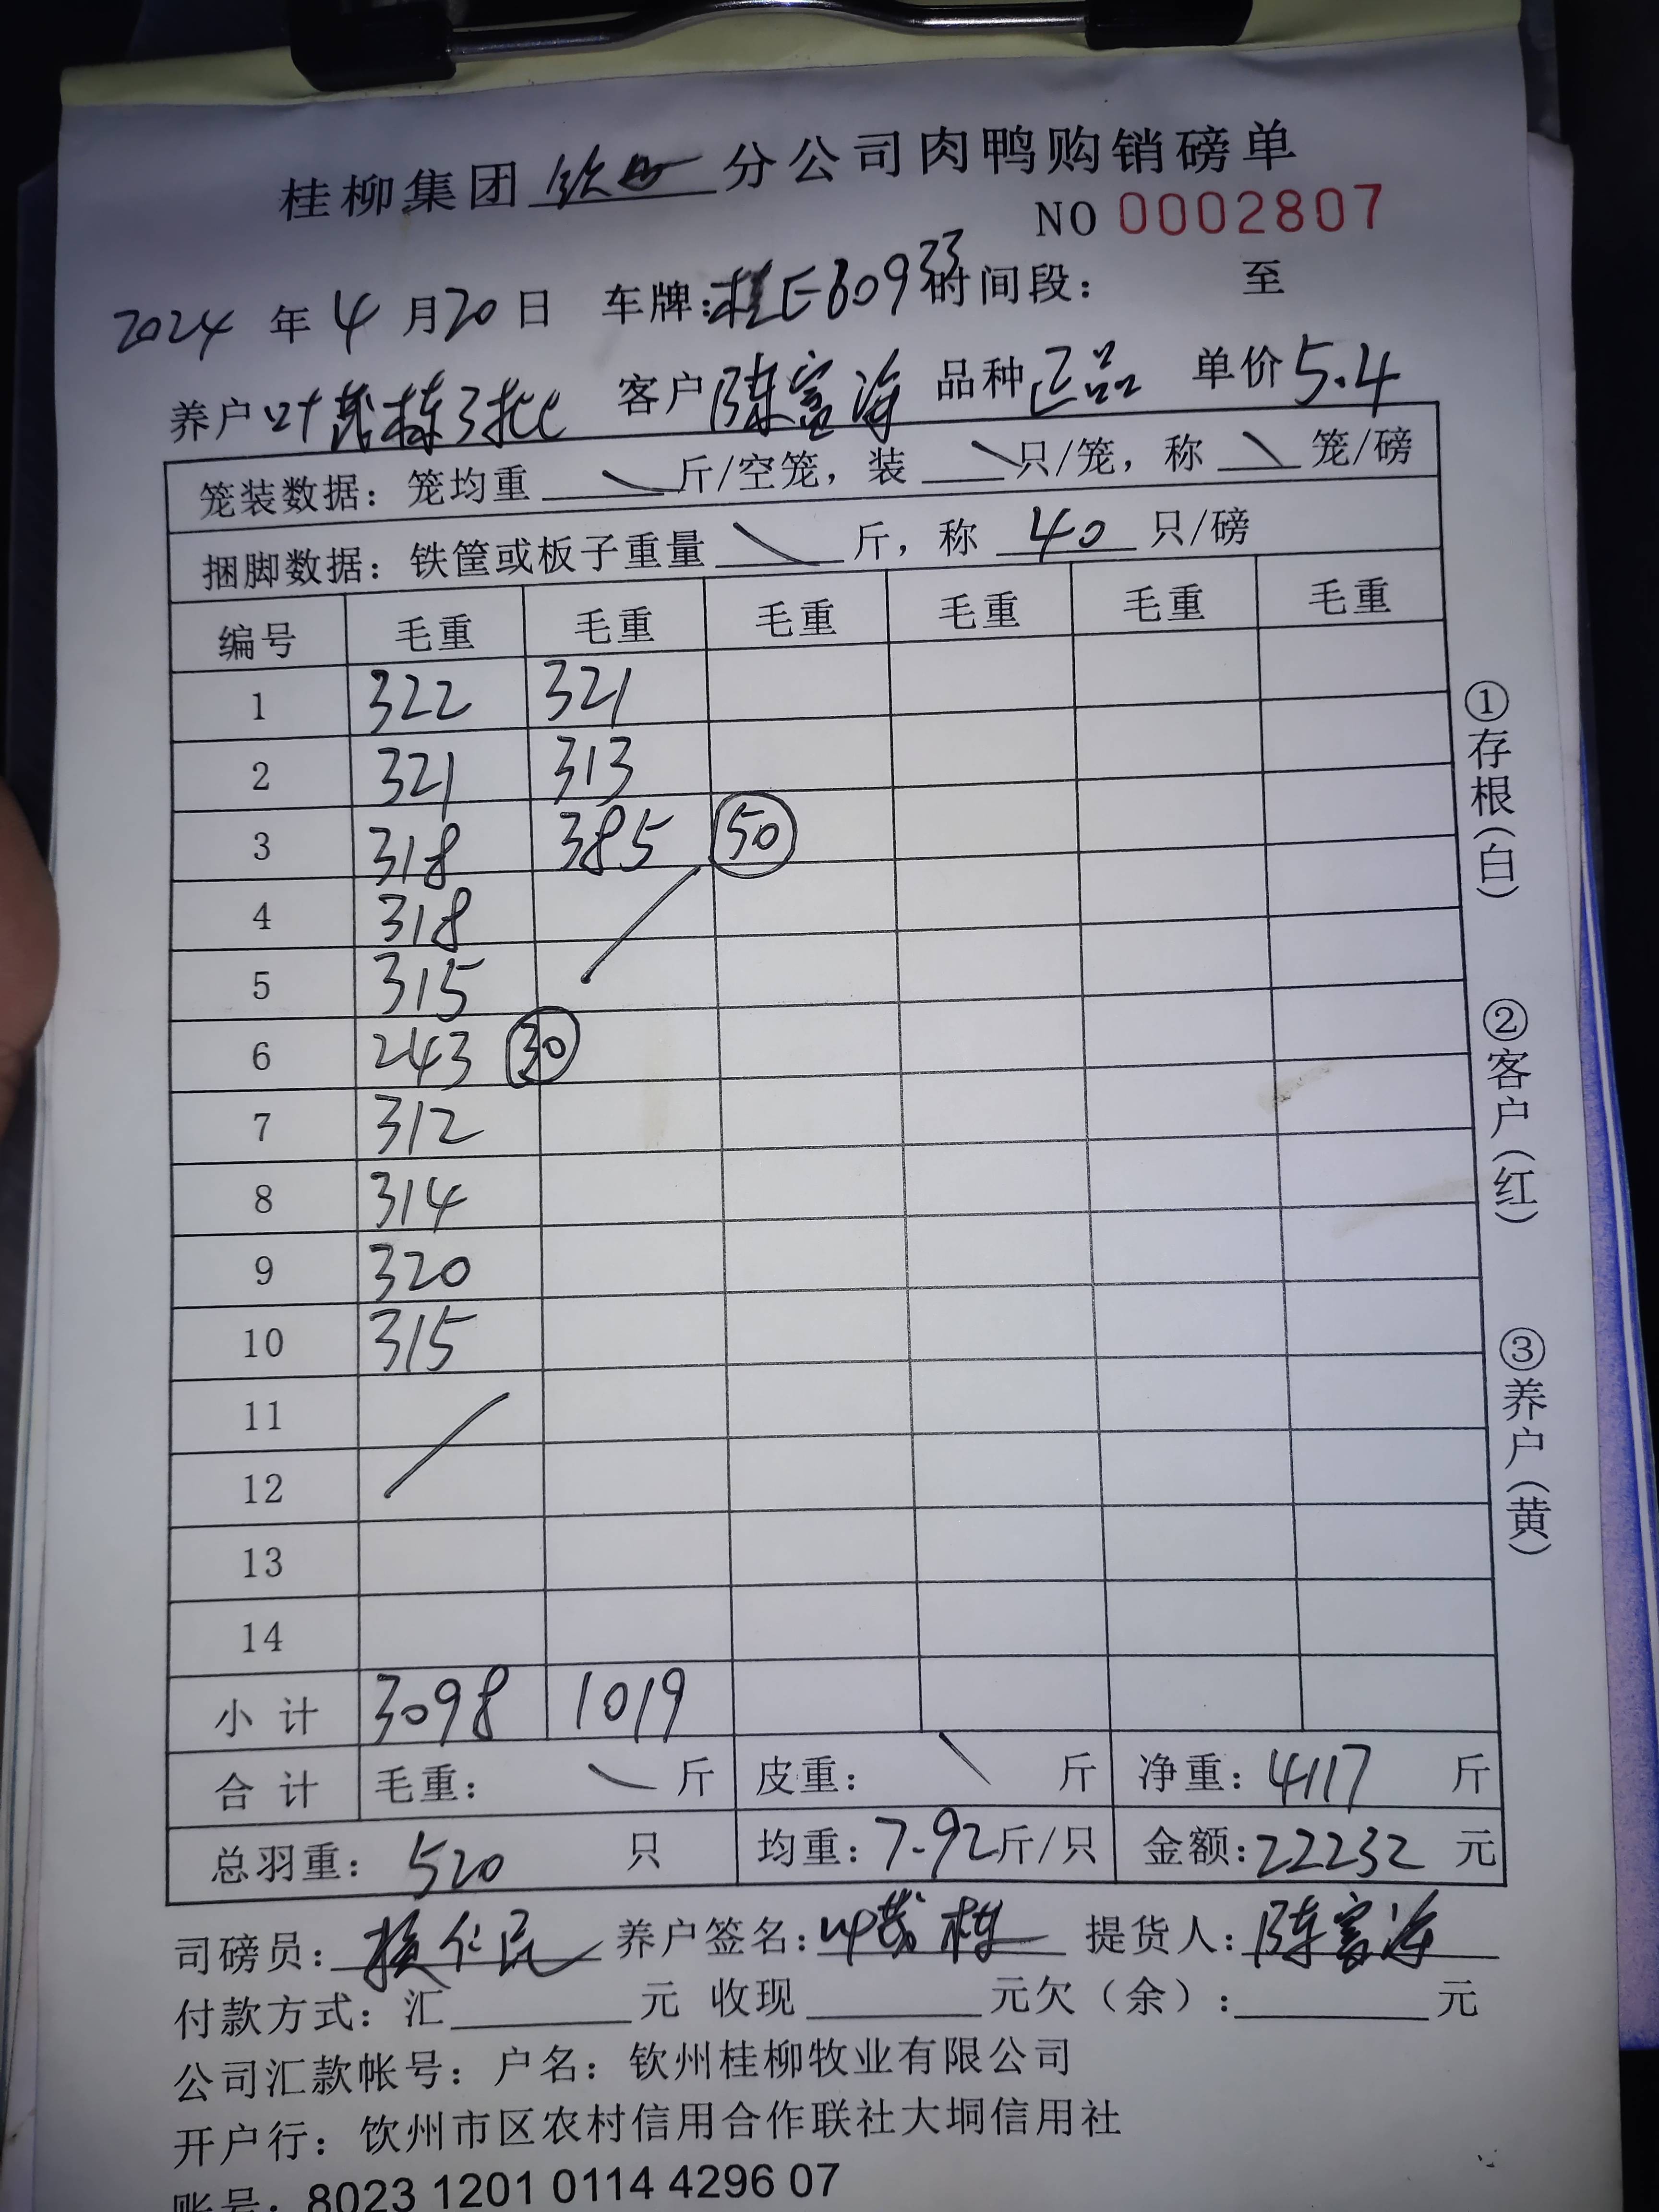 桂柳集团钦州分公司肉鸭购销磅单
NO 0002807
2024年4月20日 车牌:桂E60933时间段: 至
养户叶茂栋3批 客户陈富海 品种正品 单价5.4
笼装数据: 笼均重\斤/空笼, 装\只/笼, 称\笼/磅
捆脚数据: 铁筐或板子重量\斤, 称40只/磅
编号 毛重 毛重 毛重 毛重 毛重 毛重
1 322 321
2 321 313
3 318 385 50
4 318
5 315
6 243 30
7 312
8 314
9 320
10 315
11
12
13
14
小计 3098 1019
合计 毛重: \斤 皮重: \斤 净重: 4117斤
总羽重: 520只 均重: 7.92斤/只 金额: 22232元
司磅员: 仁民 养户签名: 叶茂栋 提货人: 陈富海
付款方式: 汇 元 收现 元欠(余): 元
公司汇款帐号: 户名: 钦州桂柳牧业有限公司
开户行: 钦州市区农村信用合作联社大垌信用社
账号: 8023 1201 0114 4296 07
①存根(白)
②客户(红)
③养户(黄)